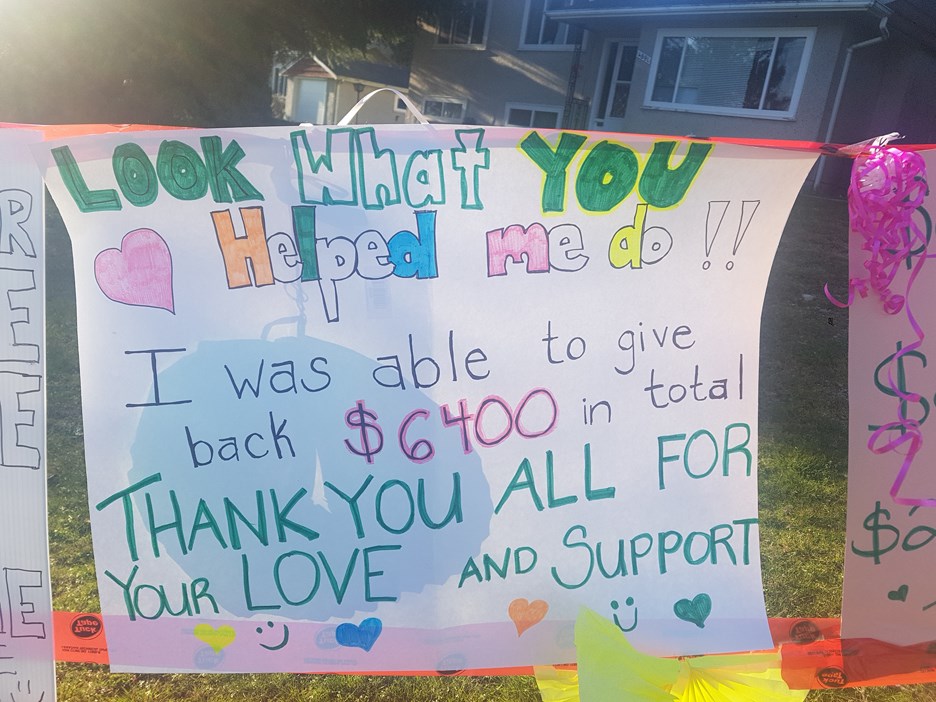 LOOK What YOU
Helped me do !!
I was able to give
back $6400 in total
THANK YOU ALL FOR
YOUR LOVE AND SUPPORT
REE
E
$
$